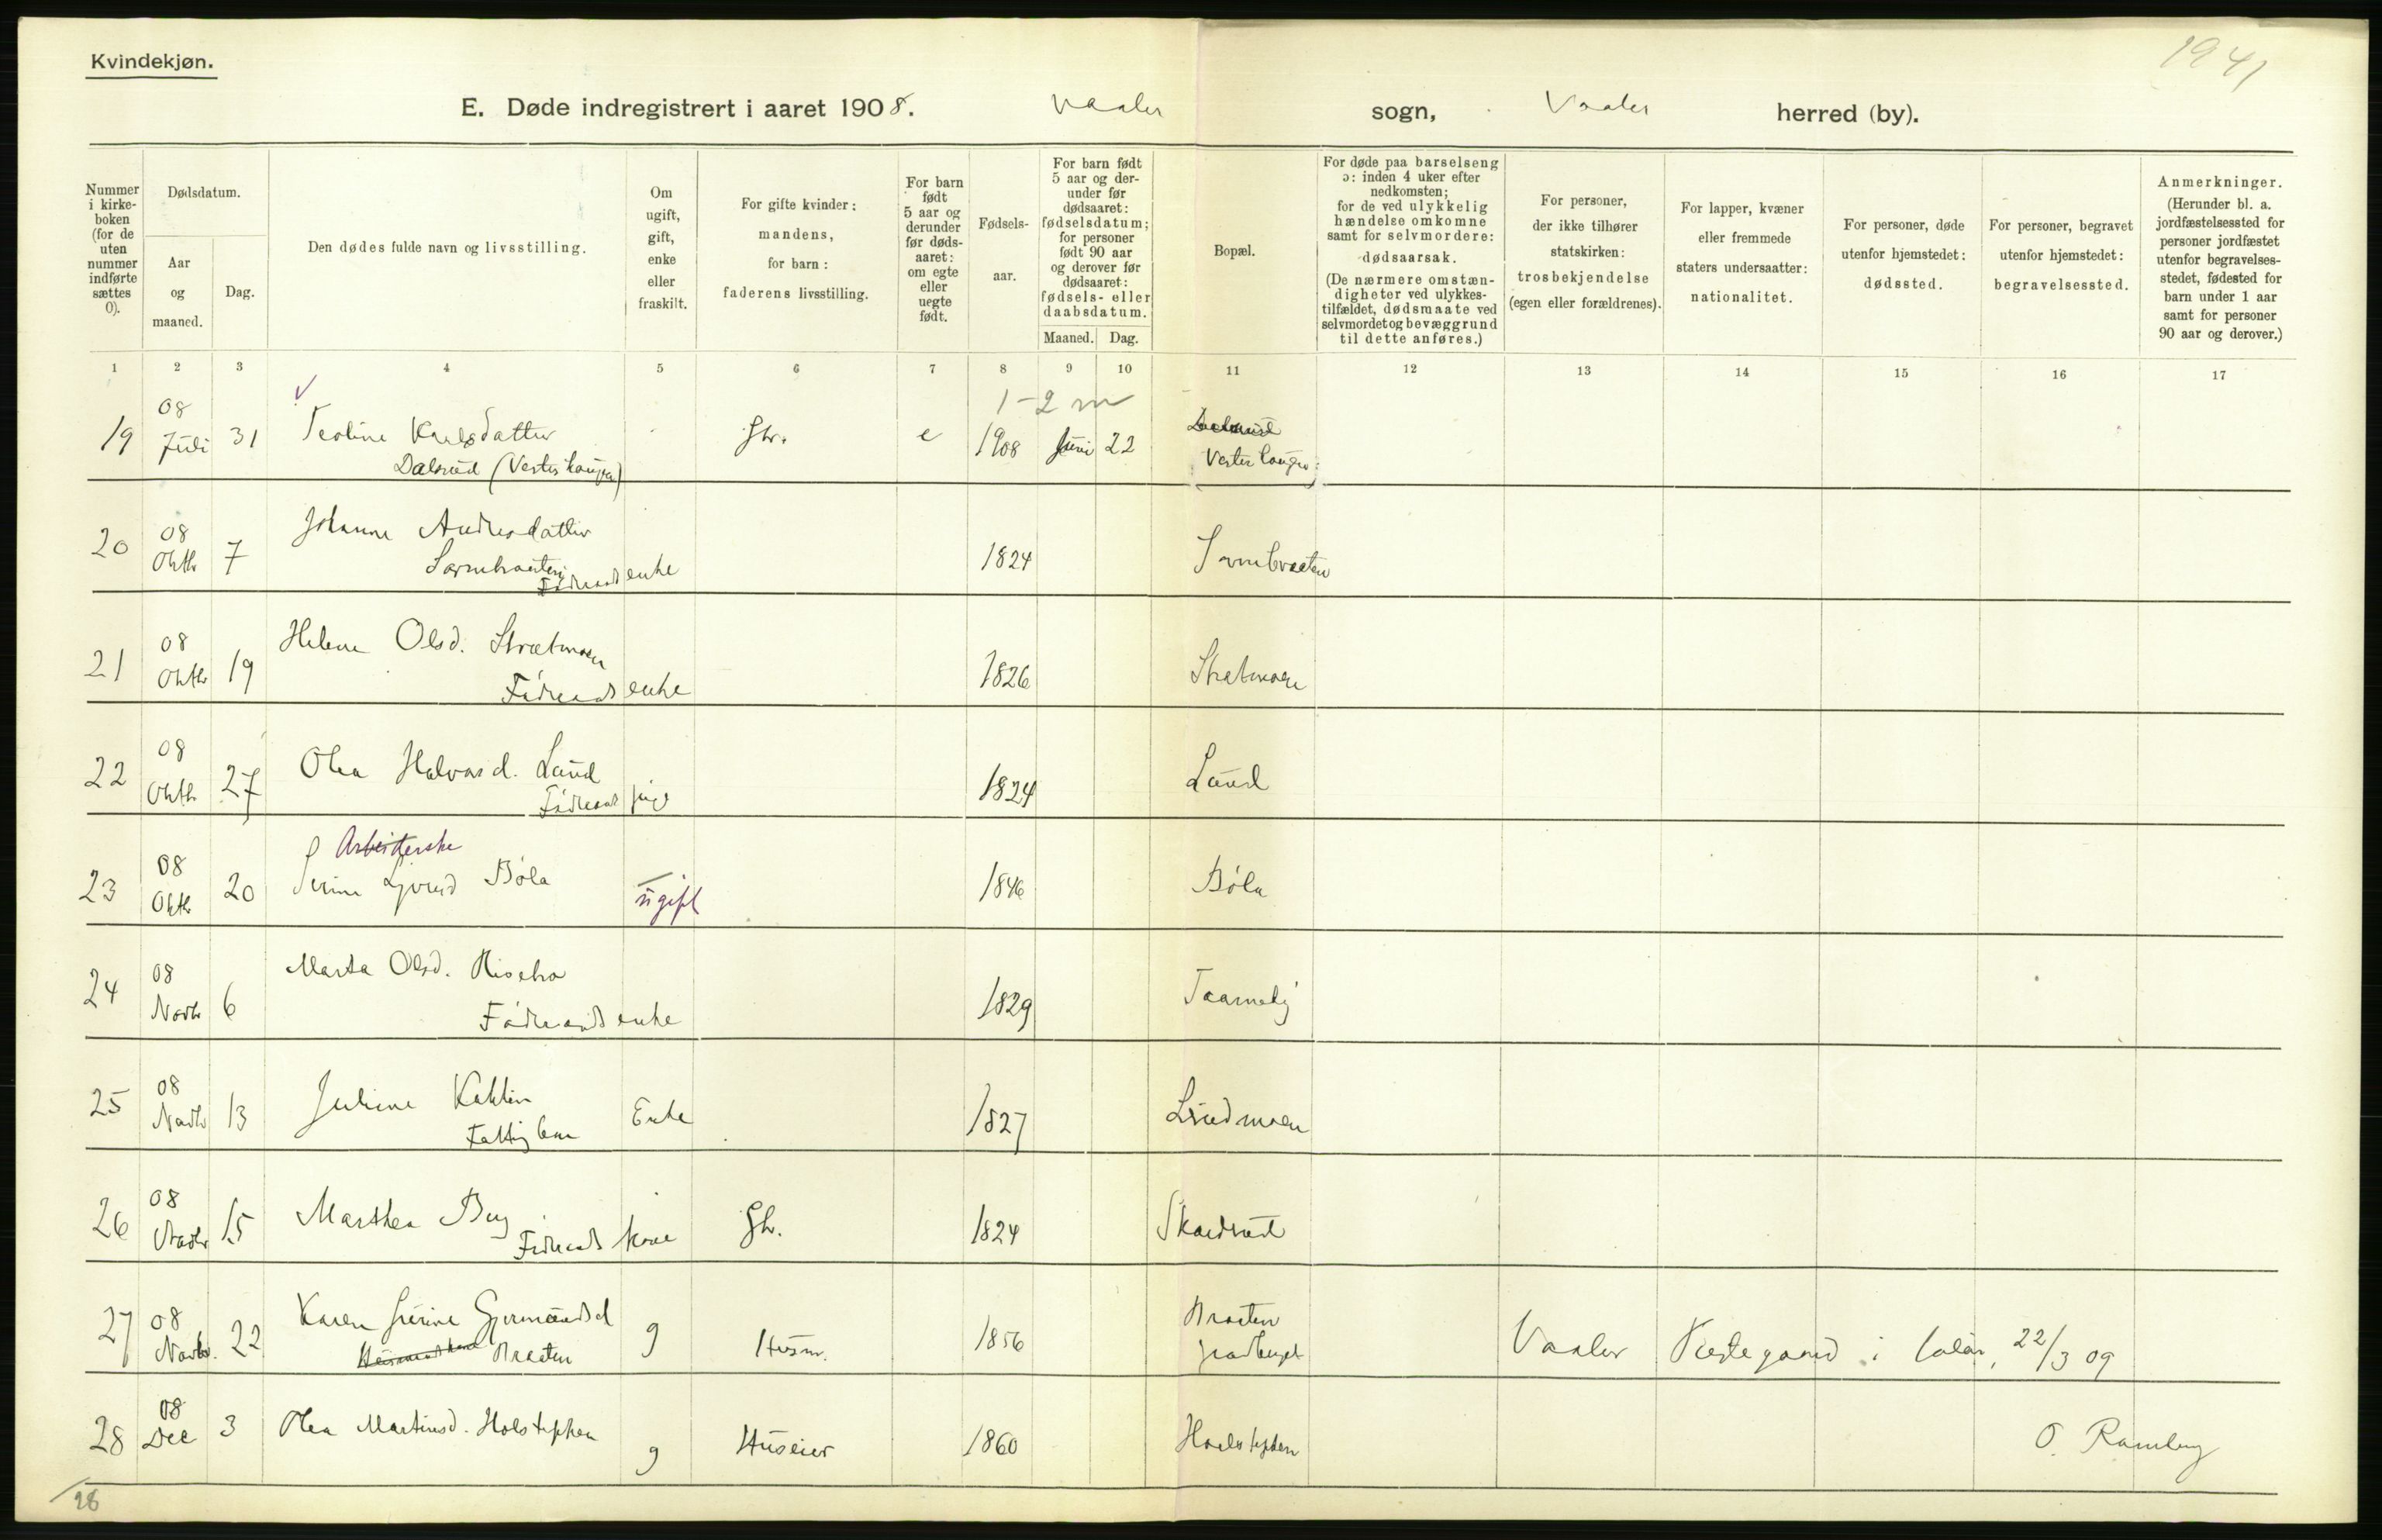 Kvindekjøn.
1941
E. Døde indregistrert i aaret 1908. Vaaler sogn, Vaaler herred (by).
Nummer i kirkeboken (for de uten nummer indførte sættes 0).
Dødsdatum.
Aar og maaned.
Dag.
Den dødes fulde navn og livsstilling.
Om ugift, gift, enke eller fraskilt.
For gifte kvinder: mandens, for barn: faderens livsstilling.
For barn født 5 aar og derunder før dødsaaret: om egte eller uegte født.
Fødselsaar.
For barn født 5 aar og derunder før dødsaaret: fødselsdatum; for personer født 90 aar og derover før dødsaaret: fødsels- eller daabsdatum.
Maaned. Dag.
Bopæl.
For døde paa barselseng ɔ: inden 4 uker efter nedkomsten; for de ved ulykkelig hændelse omkomne samt for selvmordere: dødsaarsak. (De nærmere omstændigheter ved ulykkestilfældet, dødsmaate ved selvmordet og bevæggrund til dette anføres.)
For personer, der ikke tilhører statskirken: trosbekjendelse (egen eller forældrenes).
For lapper, kvæner eller fremmede staters undersaatter: nationalitet.
For personer, døde utenfor hjemstedet: dødssted.
For personer, begravet utenfor hjemstedet: begravelsessted.
Anmerkninger. (Herunder bl. a. jordfæstelsessted for personer jordfæstet utenfor begravelsesstedet, fødested for barn under 1 aar samt for personer 90 aar og derover.)
1 2 3 4 5 6 7 8 9 10 11 12 13 14 15 16 17
1-2 m
19 08 Juli 31 Teoline Karlsdatter e 1908 Juni 22
Dalsrud
20 08 Oktb 7 Johanne Andreasdatter
enke 1824
21 08 Oktb 19 Helene Olsd. Strætmoen
Føderaads enke 1826 Strætmoen
22 08 Oktb 27 Olea Halvorsd. Laud
Føderaads pige 1824 Laud
Arbeiterske
23 08 Oktb 20 Serine Bøla ugift 1846 Bøla
24 08 Novb 6 Marta Olsd.
Føderaads enke 1829
25 08 Novb 13 Juline
Fattiglem Enke 1827 Lindmoen
26 08 Novb 15 Marthea Berg
Føderaads kone 1824
27 08 Novb. 22 Karen Gjermundsd
Braaten g Husm. 1856 Braaten
Vaaler i 22/3 09
28 08 Dec 3 Olea Martinsd. g Huseier 1860
O. Ramberg
28